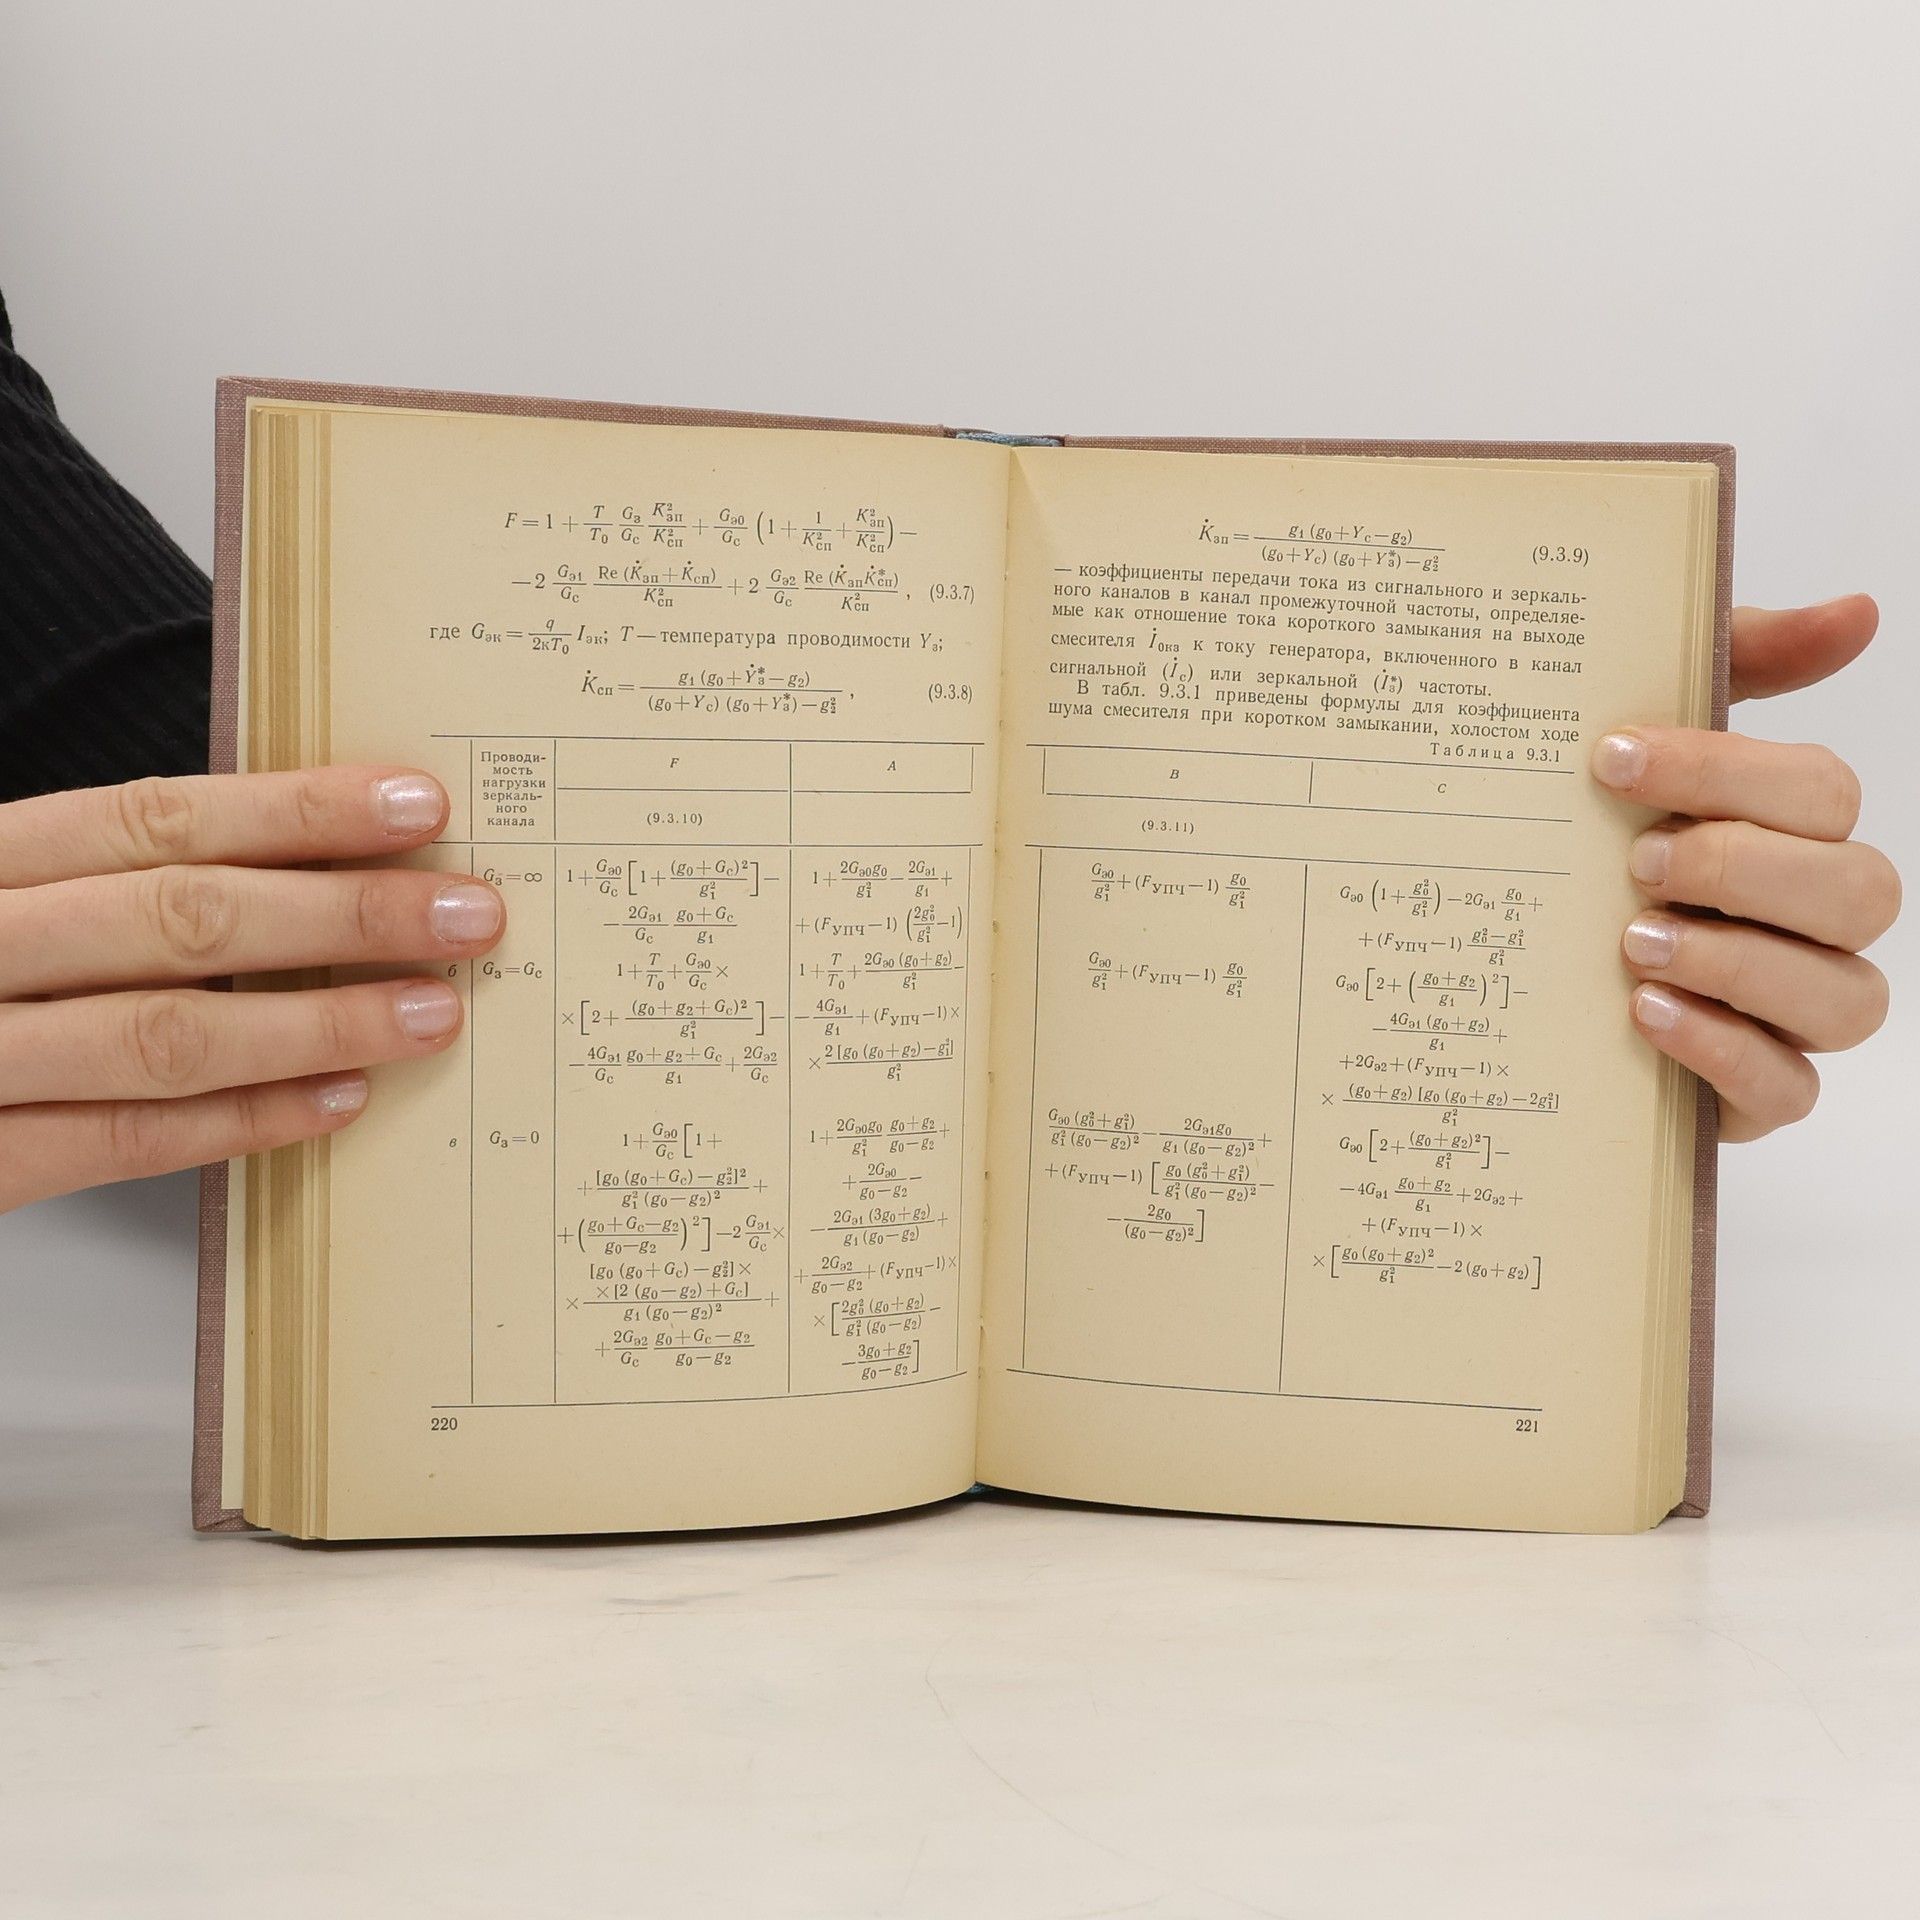 F = 1 + T/T₀ G_з/G_с K²_зп/K²_сп + G_э0/G_с (1 + 1/K²_сп + K²_зп/K²_сп) −
−2 G_э1/G_с Re (K̇_зп + K̇_сп)/K²_сп + 2 G_э2/G_с Re (K̇_зп K̇*_сп)/K²_сп , (9.3.7)
где G_эк = q/2кT₀ I_эк; T — температура проводимости Y_з;
K̇_сп = g₁ (g₀ + Ẏ*_з − g₂)/(g₀ + Y_с) (g₀ + Y*_з) − g²₂ , (9.3.8)
Проводи-
мость
нагрузки
зеркаль-
ного
канала
F
A
(9.3.10)
G_з = ∞
1 + G_э0/G_с [1 + (g₀ + G_с)²/g²₁] −
− 2G_э1/G_с g₀ + G_с/g₁
1 + 2G_э0g₀/g²₁ − 2G_э1/g₁ +
+ (F_УПЧ − 1) (2g²₀/g²₁ − 1)
б
G_з = G_с
1 + T/T₀ + G_э0/G_с ×
× [2 + (g₀ + g₂ + G_с)²/g²₁] −
− 4G_э1/G_с g₀ + g₂ + G_с/g₁ + 2G_э2/G_с
1 + T/T₀ + 2G_э0 (g₀ + g₂)/g²₁ −
− 4G_э1/g₁ + (F_УПЧ − 1) ×
× 2 [g₀ (g₀ + g₂) − g²₁]/g²₁
в
G_з = 0
1 + G_э0/G_с [1 +
+ [g₀ (g₀ + G_с) − g²₂]²/g²₁ (g₀ − g₂)² +
+ (g₀ + G_с − g₂/g₀ − g₂)²] − 2 G_э1/G_с ×
× [g₀ (g₀ + G_с) − g²₂] × × [2 (g₀ − g₂) + G_с]/g₁ (g₀ − g₂)² +
+ 2G_э2/G_с g₀ + G_с − g₂/g₀ − g₂
1 + 2G_э0g₀/g²₁ g₀ + g₂/g₀ − g₂ +
+ 2G_э0/g₀ − g₂ −
− 2G_э1 (3g₀ + g₂)/g₁ (g₀ − g₂) +
+ 2G_э2/g₀ − g₂ + (F_УПЧ − 1) ×
× [2g²₀ (g₀ + g₂)/g²₁ (g₀ − g₂) −
− 3g₀ + g₂/g₀ − g₂]
220
K̇_зп = g₁ (g₀ + Y_с − g₂)/(g₀ + Y_с) (g₀ + Y*_з) − g²₂ (9.3.9)
— коэффициенты передачи тока из сигнального и зеркаль-
ного каналов в канал промежуточной частоты, определяе-
мые как отношение тока короткого замыкания на выходе
смесителя İ_окз к току генератора, включенного в канал
сигнальной (İ_с) или зеркальной (İ*_з) частоты.
В табл. 9.3.1 приведены формулы для коэффициента
шума смесителя при коротком замыкании, холостом ходе
Таблица 9.3.1
B
C
(9.3.11)
G_э0/g²₁ + (F_УПЧ − 1) g₀/g²₁
G_э0 (1 + g²₀/g²₁) − 2G_э1 g₀/g₁ +
+ (F_УПЧ − 1) g²₀ − g²₁/g²₁
G_э0/g²₁ + (F_УПЧ − 1) g₀/g²₁
G_э0 [2 + (g₀ + g₂/g₁)²] −
− 4G_э1 (g₀ + g₂)/g₁ +
+ 2G_э2 + (F_УПЧ − 1) ×
× (g₀ + g₂) [g₀ (g₀ + g₂) − 2g²₁]/g²₁
G_э0 (g²₀ + g²₁)/g²₁ (g₀ − g₂)² − 2G_э1g₀/g₁ (g₀ − g₂)² +
+ (F_УПЧ − 1) [g₀ (g²₀ + g²₁)/g²₁ (g₀ − g₂)² −
− 2g₀/(g₀ − g₂)²]
G_э0 [2 + (g₀ + g₂)²/g²₁] −
− 4G_э1 g₀ + g₂/g₁ + 2G_э2 +
+ (F_УПЧ − 1) ×
× [g₀ (g₀ + g₂)²/g²₁ − 2 (g₀ + g₂)]
221